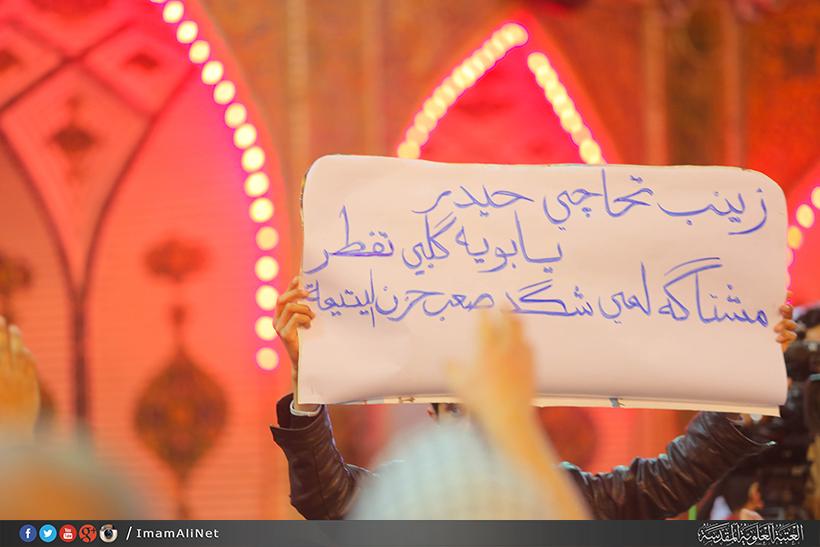 زينب تحاچي حيدر
يابويه گلبي تفطر
مشتاگه لمي شگد صعب حزن اليتيمة
/ ImamAliNet
العتبة العلوية المقدسة